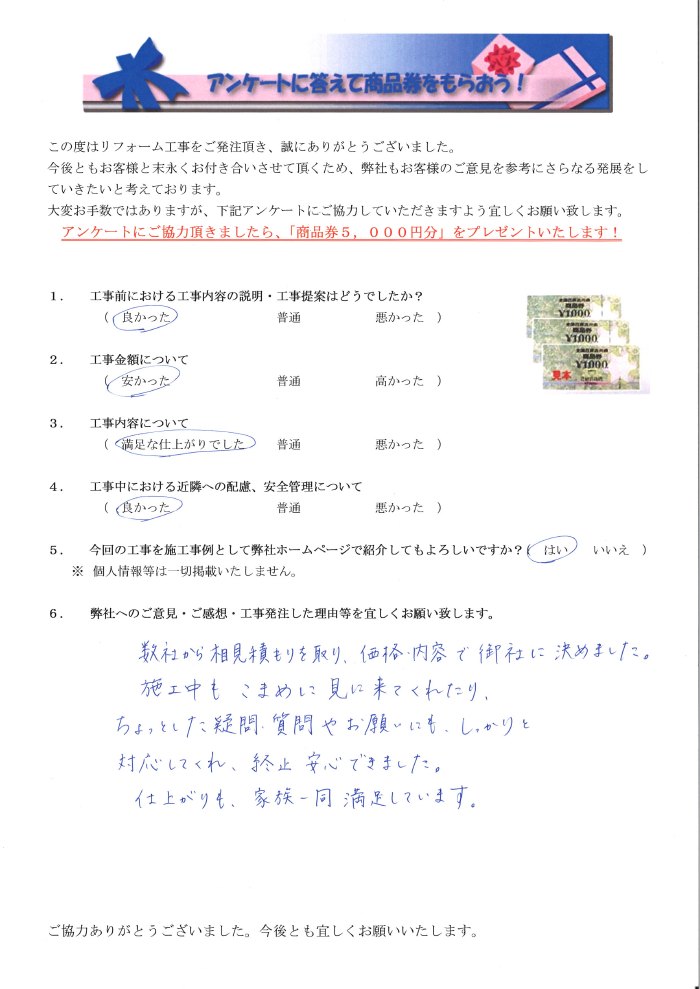 アンケートに答えて商品券をもらおう！
この度はリフォーム工事をご発注頂き、誠にありがとうございました。
今後ともお客様と末永くお付き合いさせて頂くため、弊社もお客様のご意見を参考にさらなる発展をし
ていきたいと考えております。
大変お手数ではありますが、下記アンケートにご協力していただきますよう宜しくお願い致します。
アンケートにご協力頂きましたら、「商品券５，０００円分」をプレゼントいたします！
１．　工事前における工事内容の説明・工事提案はどうでしたか？
（　良かった　　普通　　悪かった　）
商品券
¥1000
商品券
¥1000
商品券
¥1000
見本
２．　工事金額について
（　安かった　　普通　　高かった　）
３．　工事内容について
（　満足な仕上がりでした　　普通　　悪かった　）
４．　工事中における近隣への配慮、安全管理について
（　良かった　　普通　　悪かった　）
５．　今回の工事を施工事例として弊社ホームページで紹介してもよろしいですか？（　はい　　いいえ　）
※　個人情報等は一切掲載いたしません。
６．　弊社へのご意見・ご感想・工事発注した理由等を宜しくお願い致します。
数社から相見積もりを取り、価格・内容で御社に決めました。
施工中も こまめに見に来てくれたり、
ちょっとした疑問・質問やお願いにも、しっかりと
対応してくれ、終止 安心できました。
仕上がりも、家族一同 満足しています。
ご協力ありがとうございました。今後とも宜しくお願いいたします。